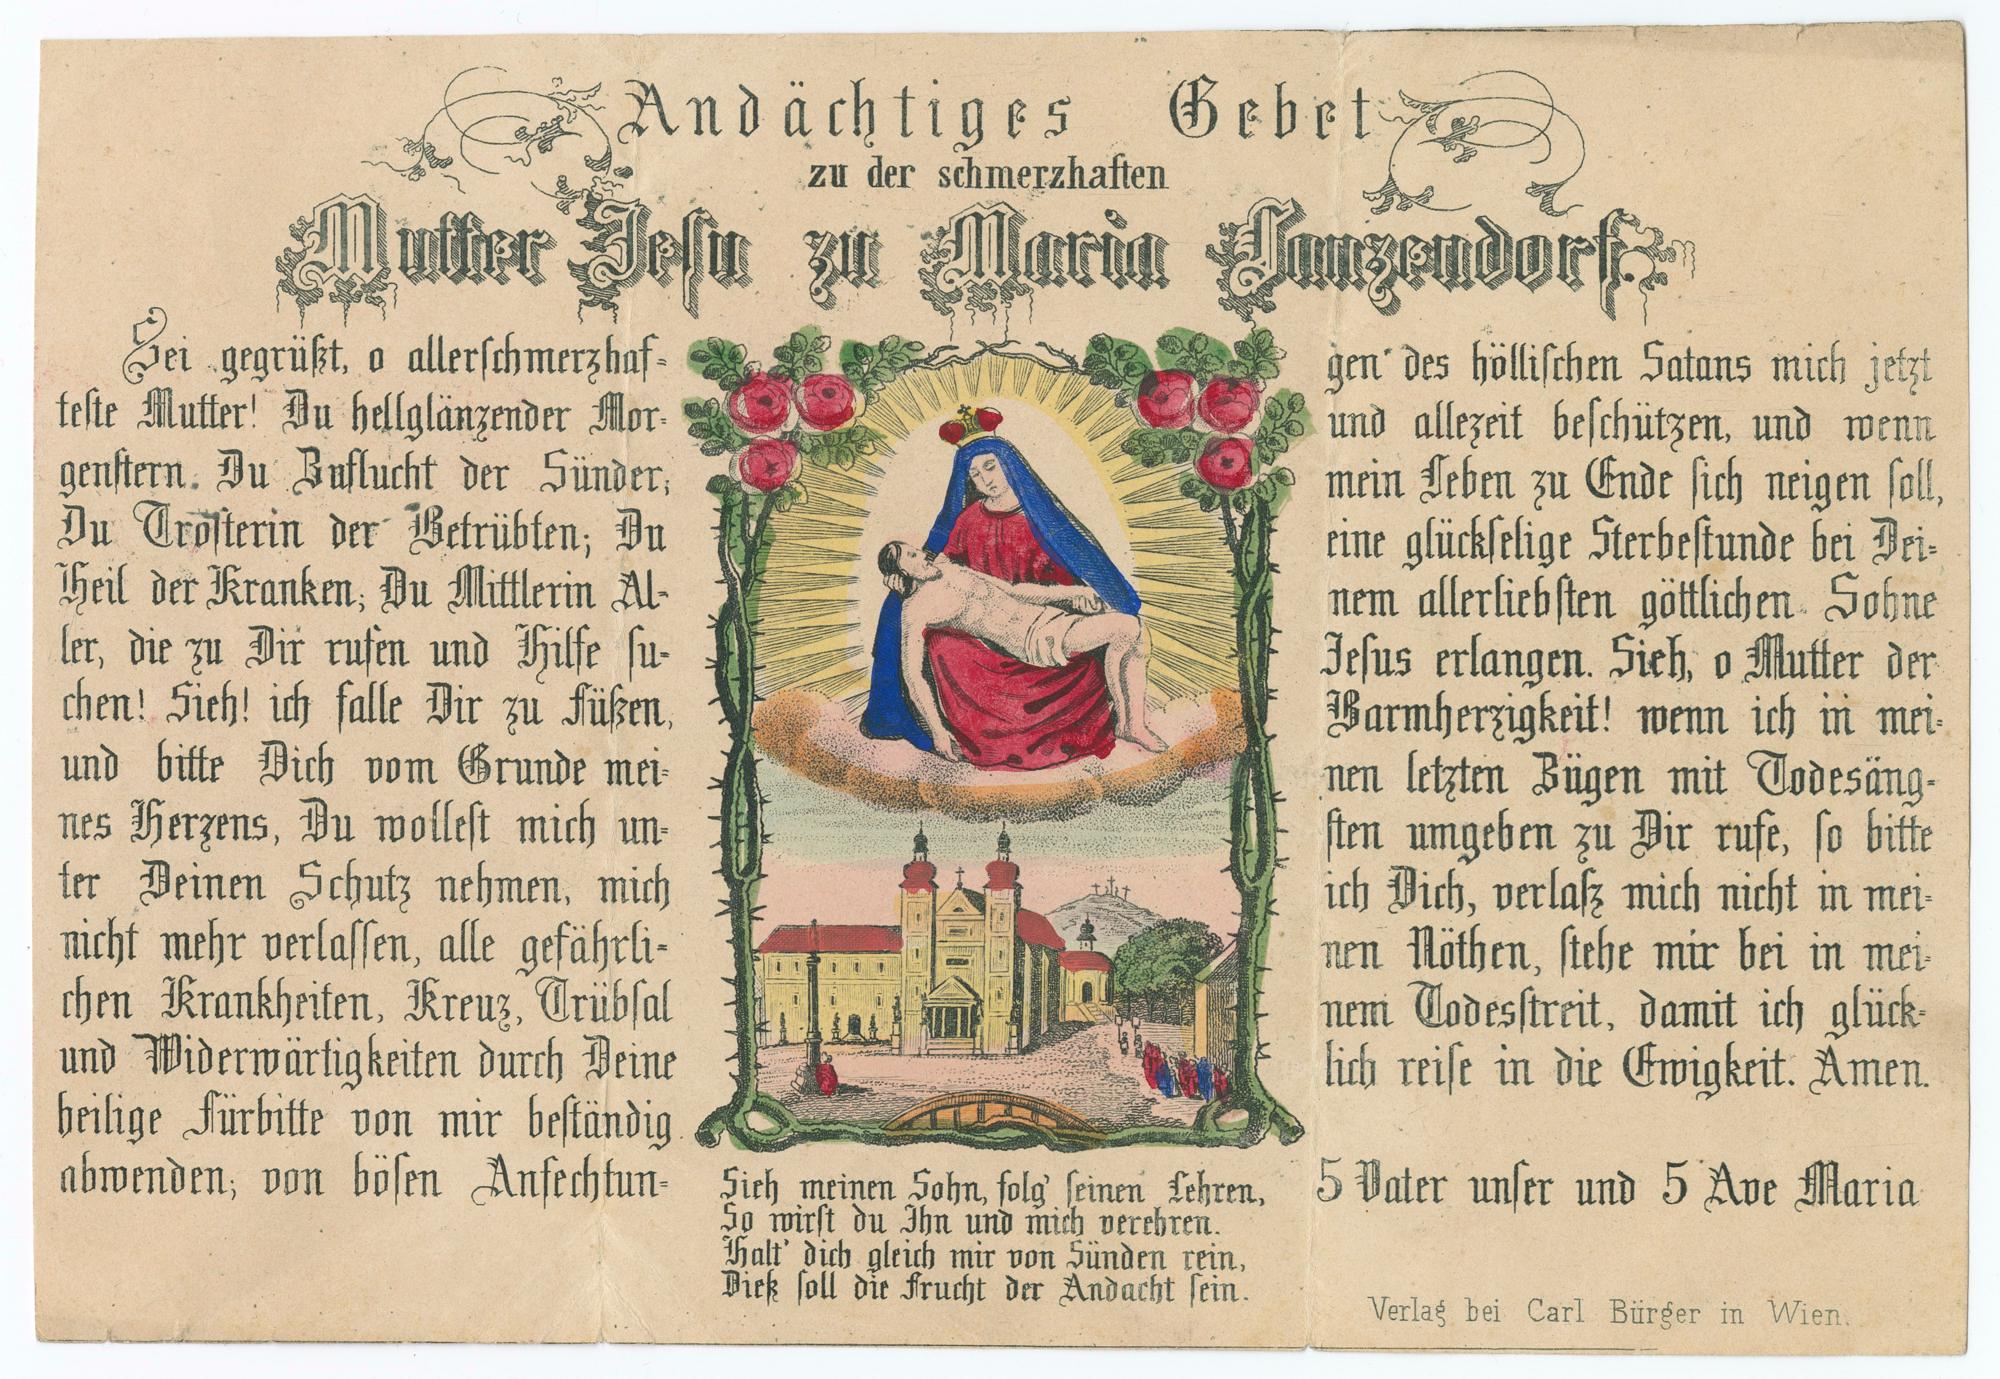 Andächtiges Gebet
zu der schmerzhaften
Mutter Jesu zu Maria Lanzendorf.
Sei gegrüßt, o allerschmerzhaf-
teste Mutter! Du hellglänzender Mor-
genstern. Du Zuflucht der Sünder;
Du Trösterin der Betrübten; Du
Heil der Kranken; Du Mittlerin Al-
ler, die zu Dir rufen und Hilfe su-
chen! Sieh! ich falle Dir zu Füßen,
und bitte Dich vom Grunde mei-
nes Herzens, Du wollest mich un-
ter Deinen Schutz nehmen, mich
nicht mehr verlassen, alle gefährli-
chen Krankheiten, Kreuz, Trübsal
und Widerwärtigkeiten durch Deine
heilige Fürbitte von mir beständig
abwenden; von bösen Anfechtun-
Sieh meinen Sohn, folg' seinen Lehren,
So wirst du Ihn und mich verehren.
Halt' dich gleich mir von Sünden rein,
Dieß soll die Frucht der Andacht sein.
gen des höllischen Satans mich jetzt
und allezeit beschützen, und wenn
mein Leben zu Ende sich neigen soll,
eine glückselige Sterbestunde bei Dei-
nem allerliebsten göttlichen Sohne
Jesus erlangen. Sieh, o Mutter der
Barmherzigkeit! wenn ich in mei-
nen letzten Zügen mit Todesäng-
sten umgeben zu Dir rufe, so bitte
ich Dich, verlaß mich nicht in mei-
nen Nöthen, stehe mir bei in mei-
nem Todesstreit, damit ich glück-
lich reise in die Ewigkeit. Amen.
5 Vater unser und 5 Ave Maria
Verlag bei Carl Bürger in Wien.